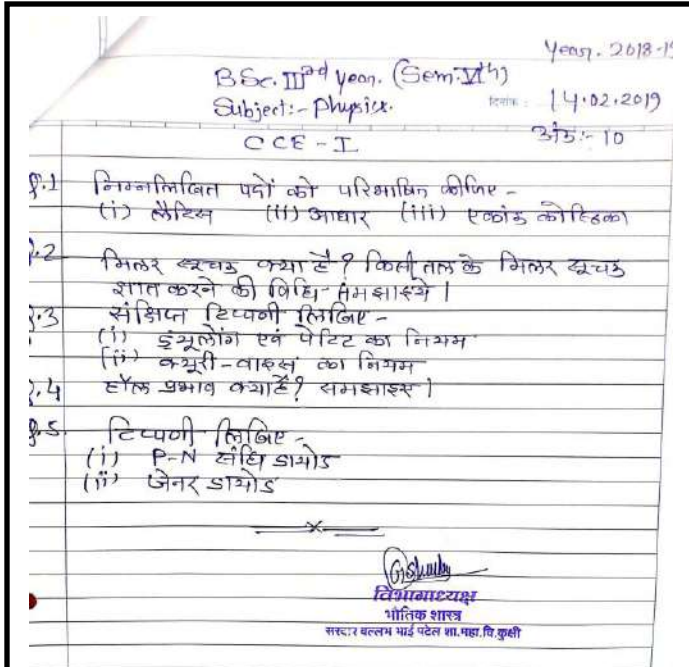 Year. 2018-19
B.Sc. IIIrd year. (Sem. VIth)
Subject:- Physics.
दिनांक : 14.02.2019
CCE - I
अंक:- 10
Q.1 निम्नलिखित पदों को परिभाषित कीजिए -
(i) लैटिस (ii) आधार (iii) एकांक कोष्ठिका
Q.2 मिलर सूचक क्या है? किसी तल के मिलर सूचक
ज्ञात करने की विधि समझाइये।
Q.3 संक्षिप्त टिप्पणी लिखिए -
(i) ड्यूलोंग एवं पेटिट का नियम
(ii) क्यूरी-वाइस का नियम
Q.4 हॉल प्रभाव क्या है? समझाइए।
Q.5. टिप्पणी लिखिए -
(i) P-N संधि डायोड
(ii) जेनर डायोड
x
विभागाध्यक्ष
भौतिक शास्त्र
सरदार वल्लभ भाई पटेल शा.महा.वि.कुक्षी